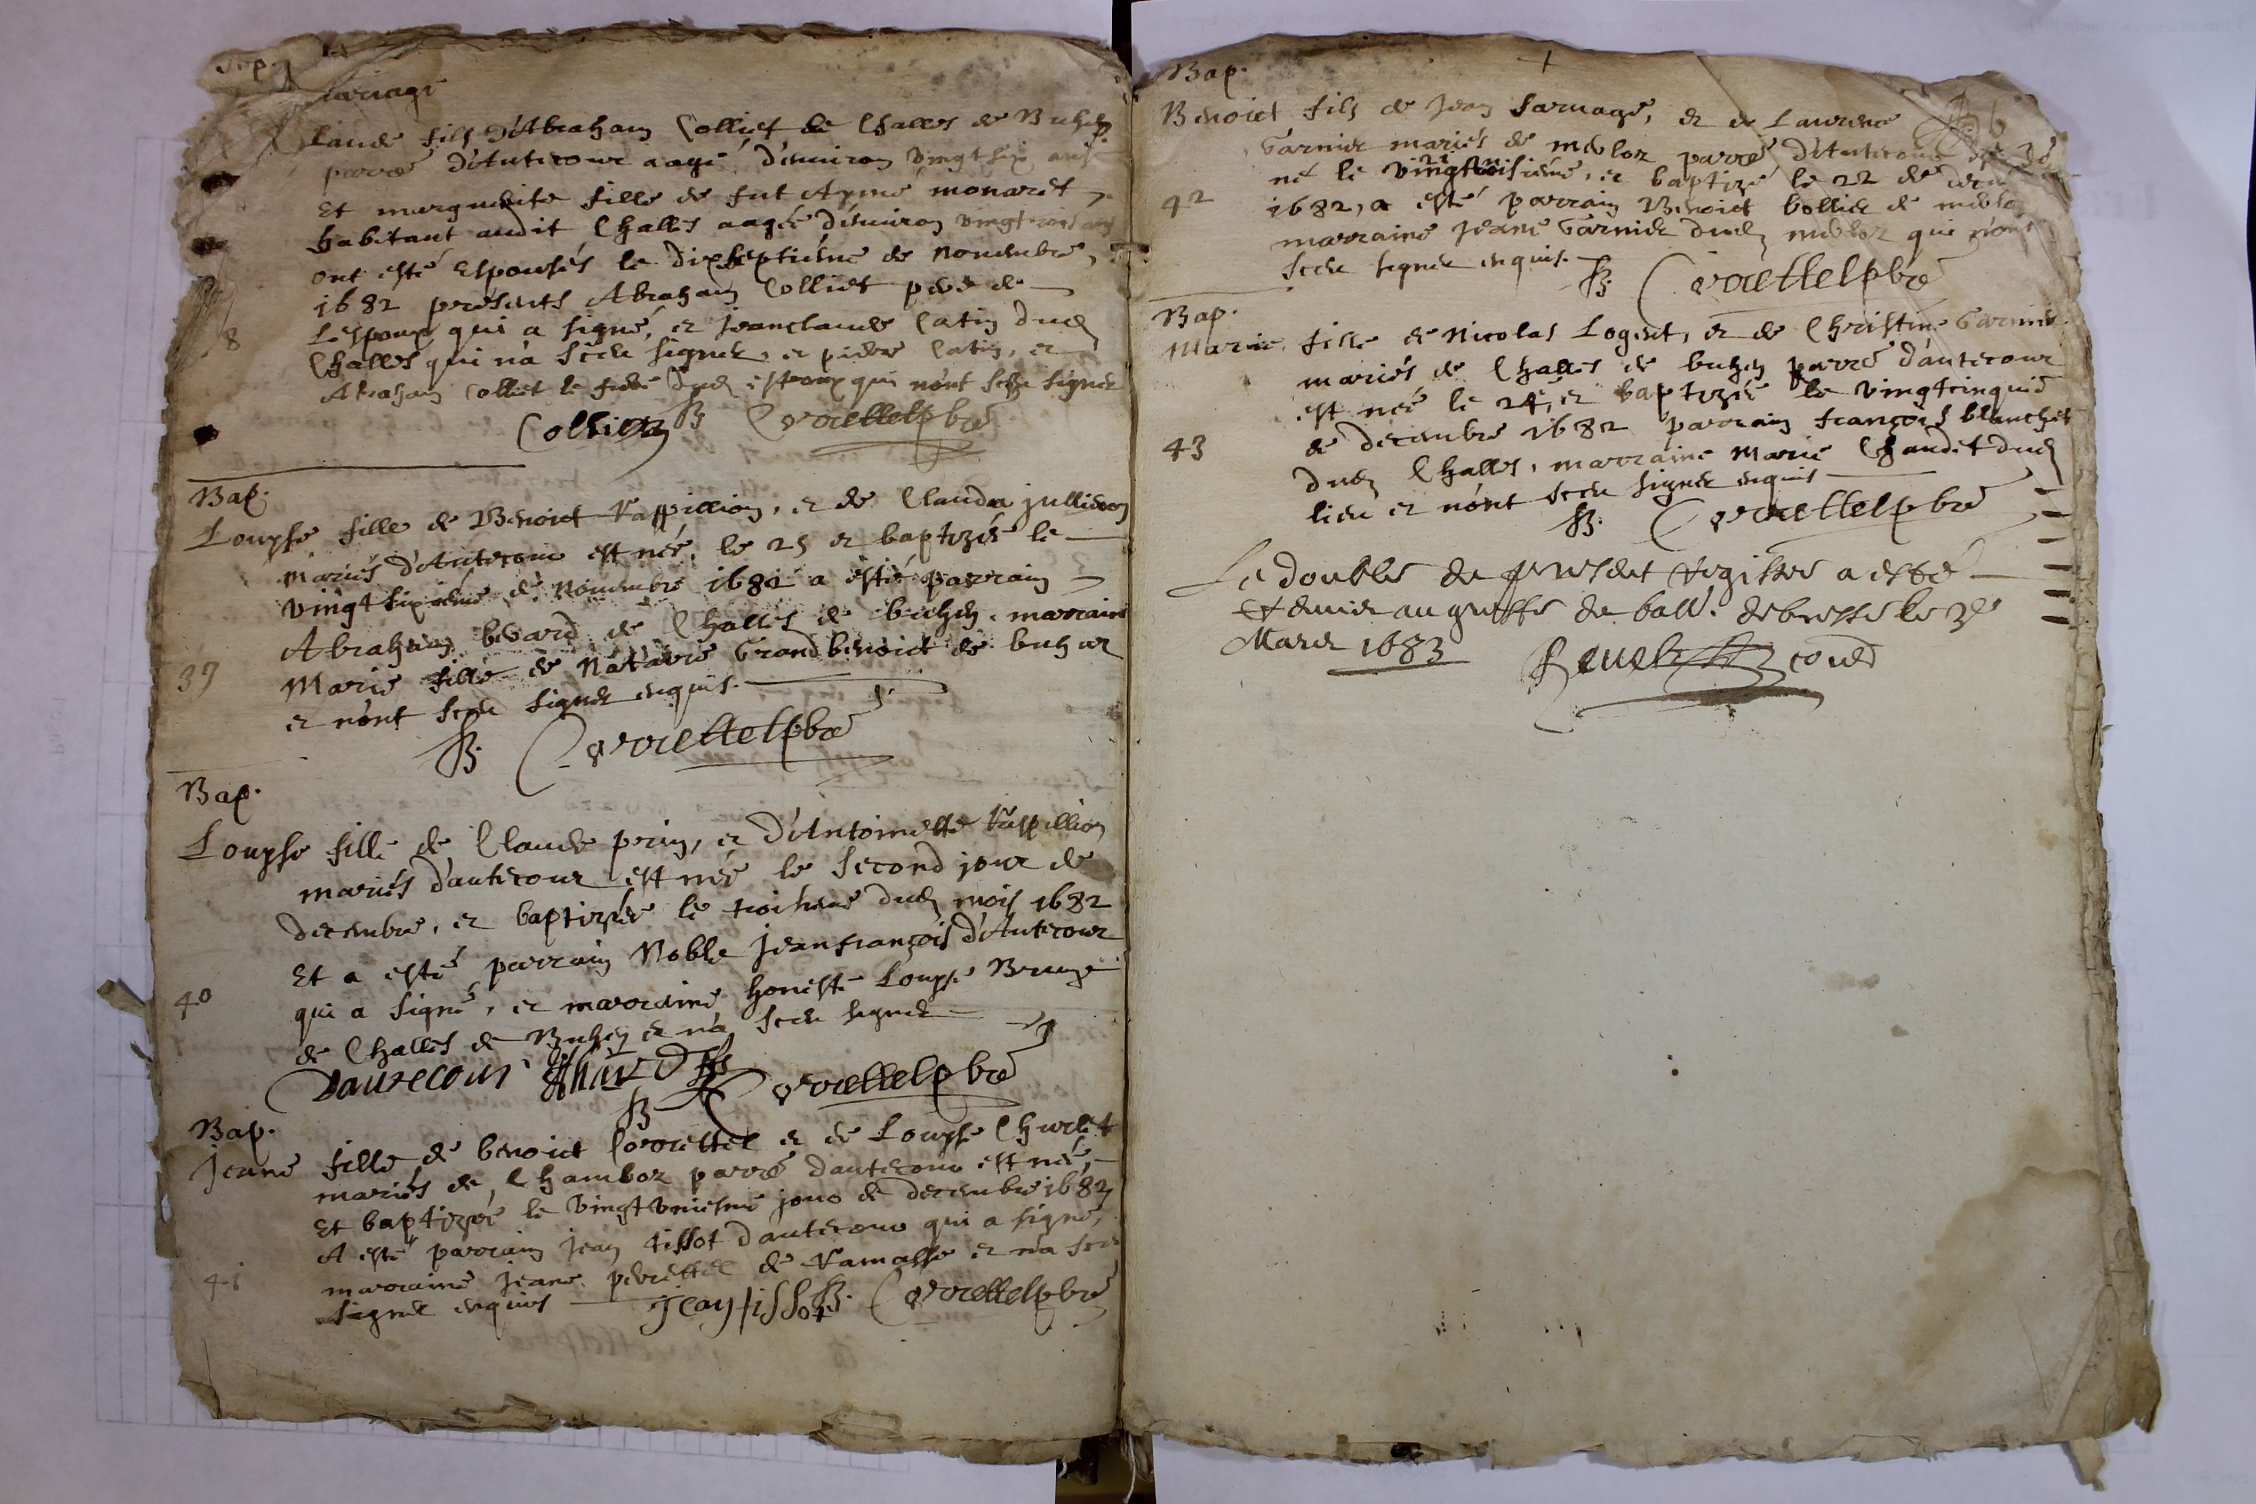 mariage
Claude fils d'Abraham Colliet de Challes de Buhen
parroe d'Antecour aagé d'environ vingt six ans
Et marguerite fille de fut Aymé monaret
habitant audit Challes aagée d'environ vingt trois ans
ont esté espousés le dixseptiéme de novembre,
1682 presents Abraham Colliet pere de
L'espoux qui a signé, et jeanclaude Catin dud
Challes qui n'a sceu signer, et pierre Catin, et
Abraham Colliet le dud espoux qui n'ont sceu signer
8
Collier B Correttel pbre
Bap.
Louyse fille de Benoict Rappillion, et de Clauda jullieron
mariés d'Antecour est née, le 25 et baptizée le
vingt sixiéme de Novembre 1682 a esté parrain
Abraham bevard de Challes de buhen, marraine
Marie fille de Grand benoict de buhen
et n'ont sceu signer enquis.
39
B. Correttel pbre
Bap.
Louyse fille de Claude prin, et d'Antoinette Rappillion
mariés d'antecour est née le second jour de
decembre, et baptizée le troisieme dud mois 1682
Et a esté parrain Noble jeanfrançois d'Antecour
qui a signé, et marraine honeste Louyse Bruge
de Challes de Buhen et n'a sceu signer
40
Dantecour
B Correttel pbre
Bap.
Jeane fille de benoict Correttel et de Louyse Churlet
mariés de Chambor parroe d'antecour est née,
Et baptizée le vingt uniesme jour de decembre 1682
A esté parrain jean tissot d'antecour qui a signé,
marraine jeane perrettel de Ramasse et n'a sceu
signer enquis
41
jean tissot B. Correttel pbre
Bap.
Benoict fils de jean sarvage, et de Laurence
Garnier mariés de mevloz parroe d'Antecour est
né le vingt uniéme, et baptizé le 22 de
1682, a esté parrain Benoict bollier de
marraine jeane Garnier dud mevloz qui n'ont
sceu signer enquis.
42
B. Correttel pbre
Bap.
Marie fille de Nicolas Logent, et de Christine Garnier
mariés de Challes de buhen parroe d'antecour
est née le 24, et baptizée le vingtcinquié
de decembre 1682 parrain françois blanchet
dud Challes, marraine Marie Chandet dud
lieu et n'ont sceu signer enquis
43
B. Correttel pbre
Le double du present registre a esté
au greffe du ball. de bresse le 3e
Mars 1683